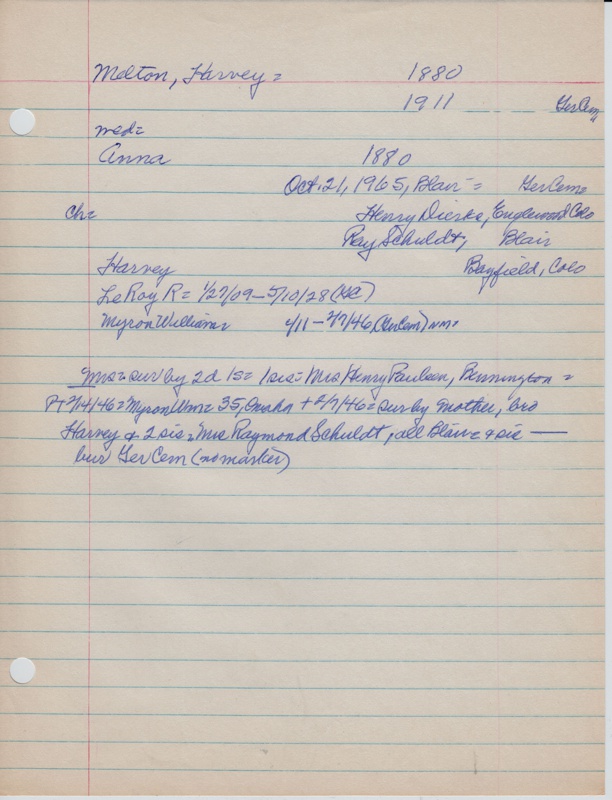 Melton, Harvey = 1880
1911 GerCem
med=
Anna 1880
Oct. 21, 1965, Blair = GerCem
Ch= Henry Dierks, Englewood Colo
Ray Schuldt, Blair
Harvey Bayfield, Colo
LeRoy R = 1/27/09 - 5/10/28 (HC)
Myron William /11 - 2/7/46 (GerCem) nm
Mrs = sur by 2d 1s = 1 sis = Mrs Henry Paulsen, Bennington =
2/14/46 = Myron Wm = 35, Omaha + 2/7/46 = sur by mother, bro
Harvey & 2 sis = Mrs Raymond Schuldt, all Blair = & sis —
bur GerCem (no marker)